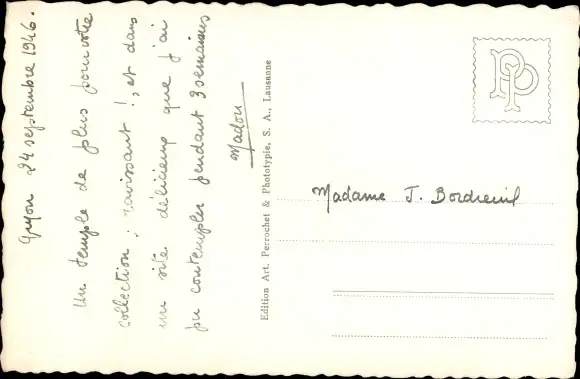 Gryon 24 septembre 1946.
Un temple de plus pour votre
collection : ravissant !, et dans
un site délicieux que j'ai
pu contempler pendant 3 semaines
Madou
Edition Art. Perrochet & Phototypie, S. A., Lausanne
Madame J. Bordreuil